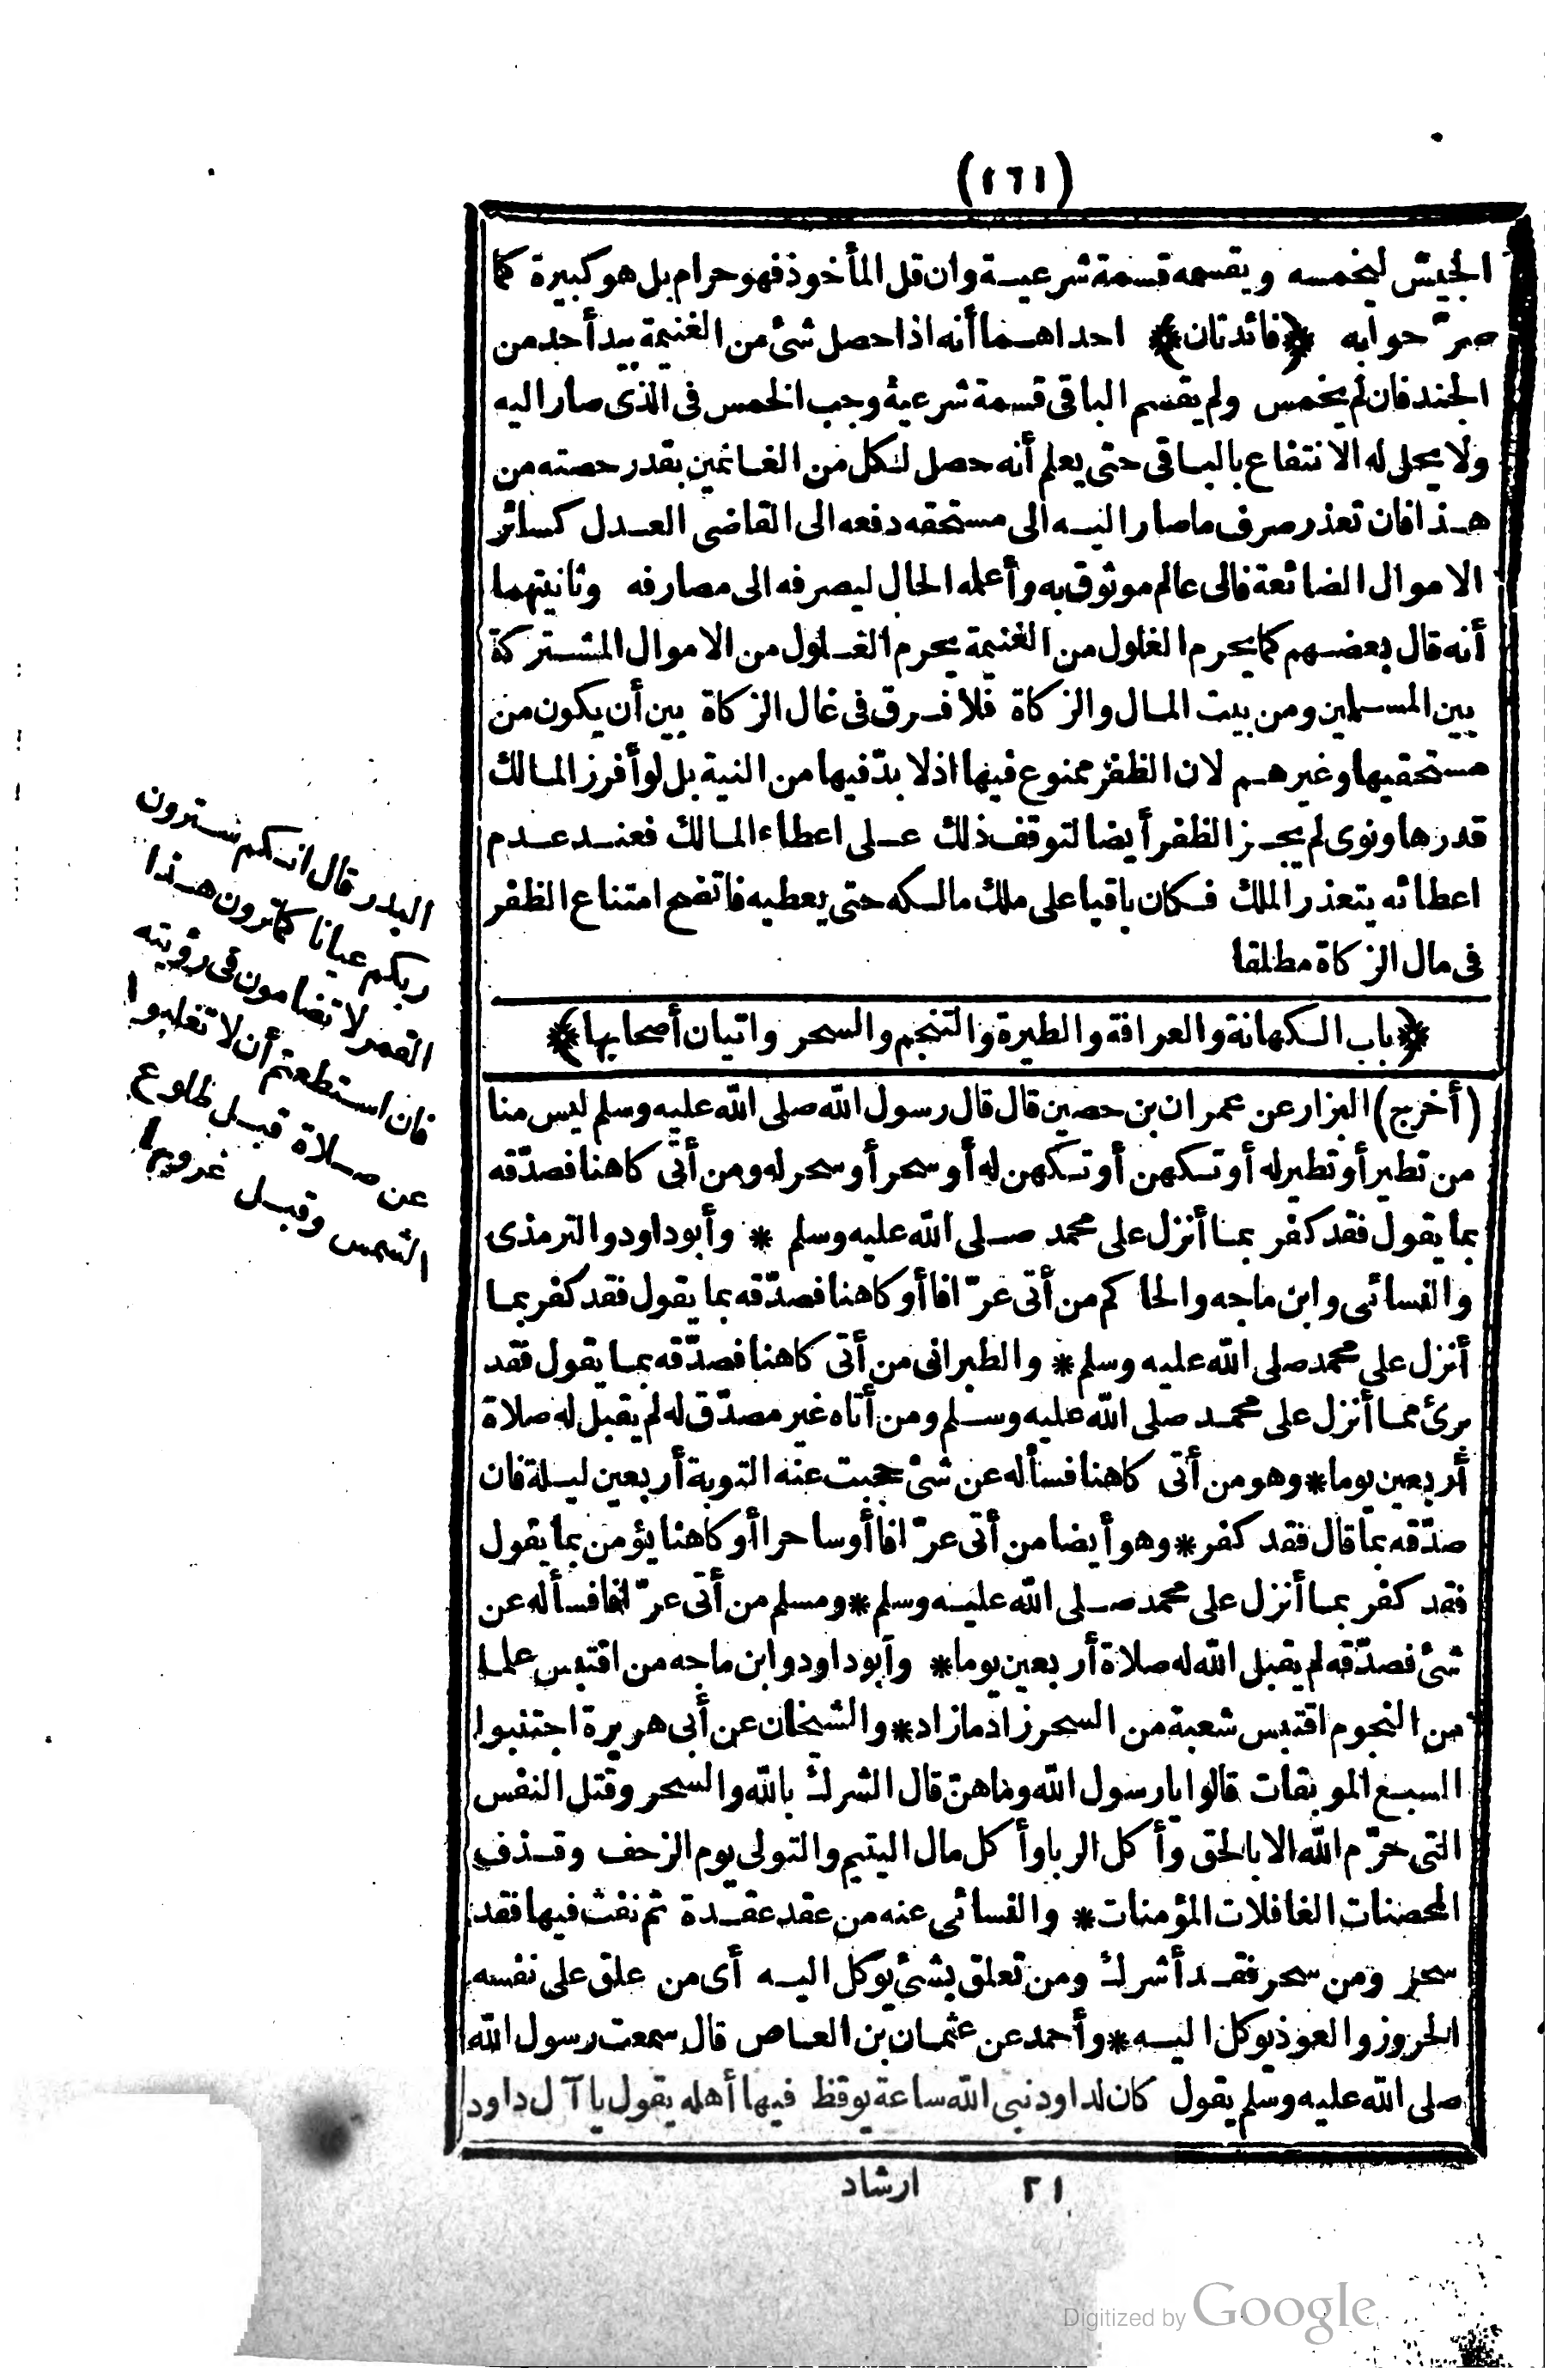 (١٦١)
الجيش ليخمسه ويقسمه قسمة شرعية وان قل المأخوذ فهو حرام بل هو كبيرة كما
صرّحوا به ﴿فائدتان﴾ احداهما أنه اذا حصل شئ من الغنيمة بيد أحد من
الجند فان لم يخمس ولم يقسم الباقى قسمة شرعية وجب الخمس فى الذى صار اليه
ولا يحل له الانتفاع بالباقى حتى يعلم أنه حصل لكل من الغانمين بقدر حصته من
هذا فان تعذر صرف ما صار اليه الى مستحقه دفعه الى القاضى العدل كسائر
الاموال الضائعة فالى عالم موثوق به وأعلمه الحال ليصرفه الى مصارفه وثانيتهما
أنه قال بعضهم كما يحرم الغلول من الغنيمة يحرم الغلول من الاموال المشتركة
بين المسلمين ومن بيت المال والزكاة فلا فرق فى غال الزكاة بين أن يكون من
مستحقيها وغيرهم لان الظفر ممنوع فيها اذ لا بدّ فيها من النية بل لو أفرز المالك
قدرها ونوى لم يجز الظفر أيضا لتوقف ذلك على اعطاء المالك فعند عدم
اعطائه يتعذر الملك فكان باقيا على ملك مالكه حتى يعطيه فاتضح امتناع الظفر
فى مال الزكاة مطلقا
﴿باب الكهانة والعرافة والطيرة والتنجيم والسحر واتيان أصحابها﴾
(أخرج) البزار عن عمران بن حصين قال قال رسول الله صلى الله عليه وسلم ليس منا
من تطير أو تطير له أو تكهن أو تكهن له أو سحر أو سحر له ومن أتى كاهنا فصدّقه
بما يقول فقد كفر بما أنزل على محمد صلى الله عليه وسلم * وأبو داود والترمذى
والنسائى وابن ماجه والحاكم من أتى عرّافا أو كاهنا فصدّقه بما يقول فقد كفر بما
أنزل على محمد صلى الله عليه وسلم * والطبرانى من أتى كاهنا فصدّقه بما يقول فقد
برئ مما أنزل على محمد صلى الله عليه وسلم ومن أتاه غير مصدّق له لم يقبل له صلاة
أربعين يوما * وهو من أتى كاهنا فسأله عن شئ حجبت عنه التوبة أربعين ليلة فان
صدّقه بما قال فقد كفر * وهو أيضا من أتى عرّافا أو ساحرا أو كاهنا يؤمن بما يقول
فقد كفر بما أنزل على محمد صلى الله عليه وسلم * ومسلم من أتى عرّافا فسأله عن
شئ فصدّقه لم يقبل الله له صلاة أربعين يوما * وأبو داود وابن ماجه من اقتبس علما
من النجوم اقتبس شعبة من السحر زاد ما زاد * والشيخان عن أبى هريرة اجتنبوا
السبع الموبقات قالوا يا رسول الله وما هنّ قال الشرك بالله والسحر وقتل النفس
التى حرّم الله الا بالحق وأكل الربا وأكل مال اليتيم والتولى يوم الزحف وقذف
المحصنات الغافلات المؤمنات * والنسائى عنه من عقد عقدة ثم نفث فيها فقد
سحر ومن سحر فقد أشرك ومن تعلق بشئ يوكل اليه أى من علق على نفسه
الحروز والعوذ يوكل اليه * وأحمد عن عثمان بن العاص قال سمعت رسول الله
صلى الله عليه وسلم يقول كان لداود نبى الله ساعة يوقظ فيها أهله يقول يا آل داود
البدر قال انكم سترون
ربكم عيانا كما ترون هذا
القمر لا تضامون فى رؤيته
فان استطعتم أن لا تغلبوا
عن صلاة قبل طلوع
الشمس وقبل غروبها
٢١ ارشاد
Digitized by Google